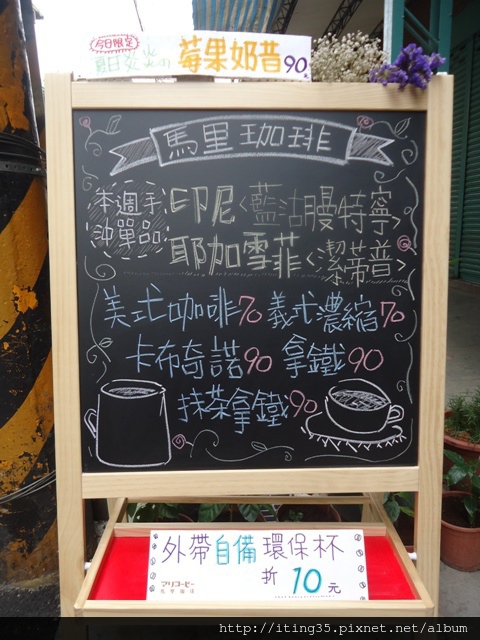 今日限定
夏日炎炎の 莓果奶昔90元
馬里珈琲
本週手沖單品
印尼<藍湖曼特寧>
耶加雪菲<潔蒂普>
美式咖啡70 義式濃縮70
卡布奇諾90 拿鐵90
抹茶拿鐵90
外帶自備環保杯
折10元
マリコーヒー
馬里珈琲
http://iting35.pixnet.net/album